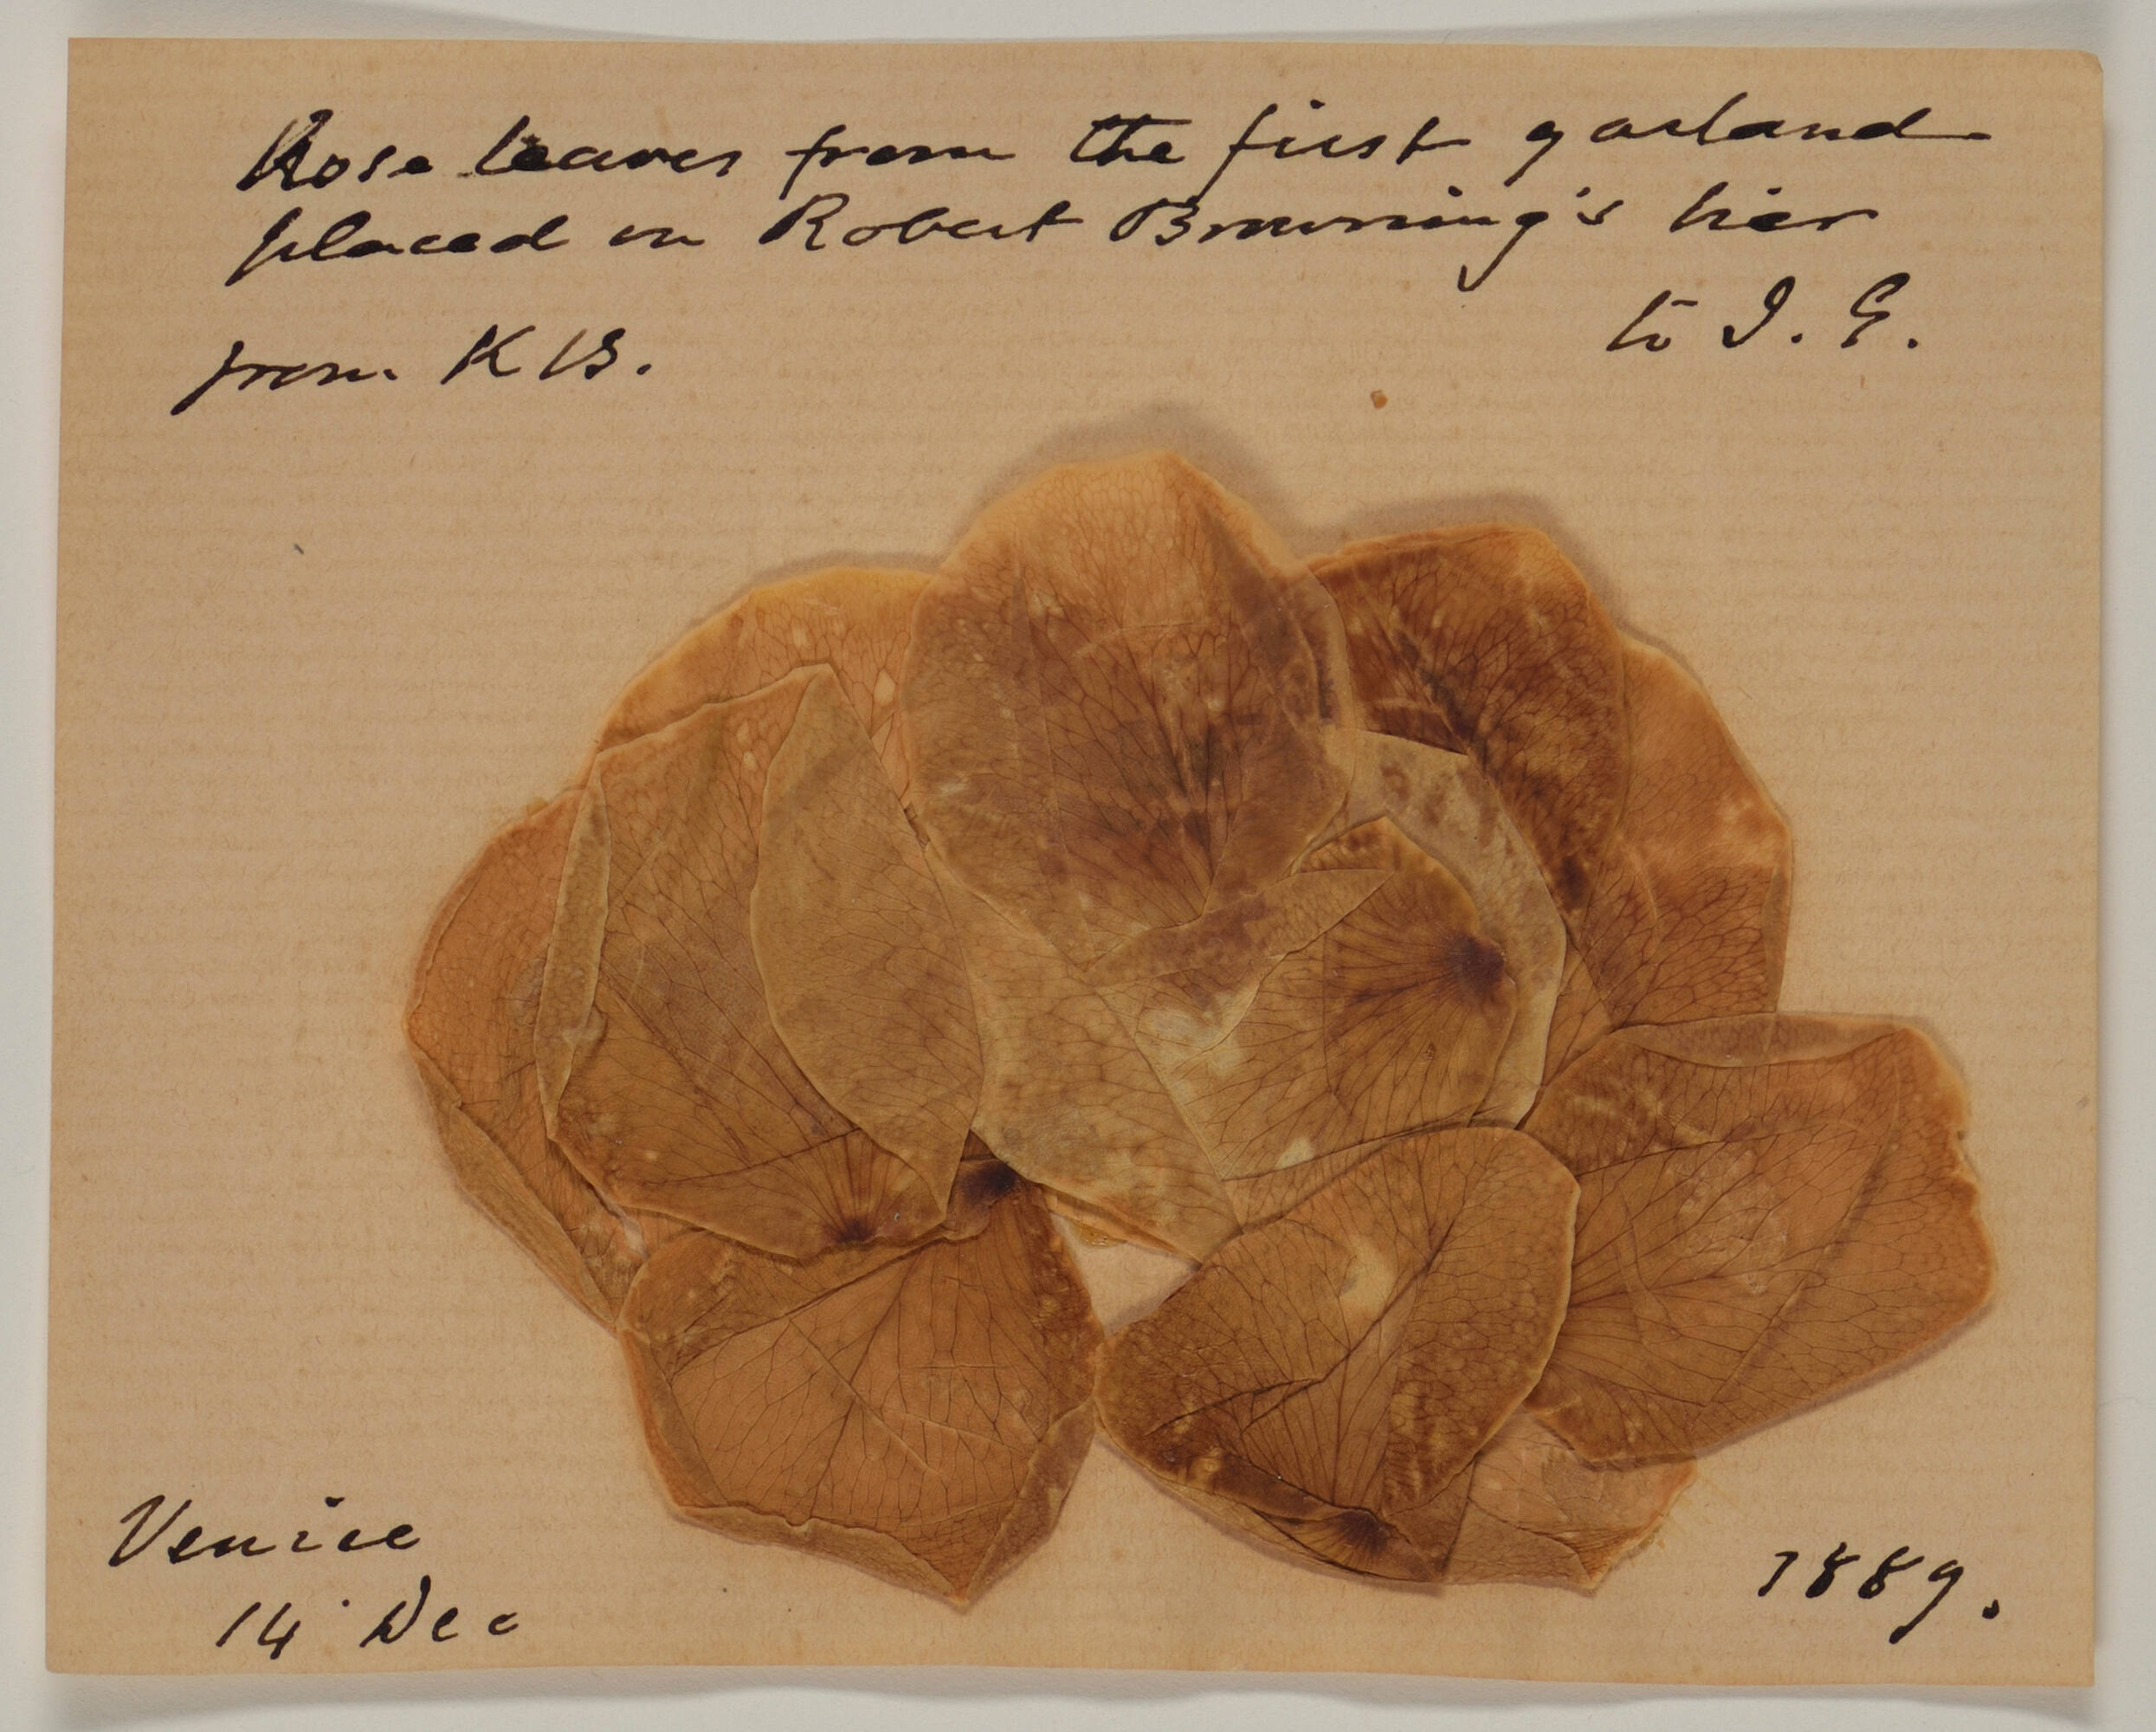 Rose leaves from the first garland
placed on Robert Browning's bier
to I. G.
from K B.
Venice
14 Dec
1889.